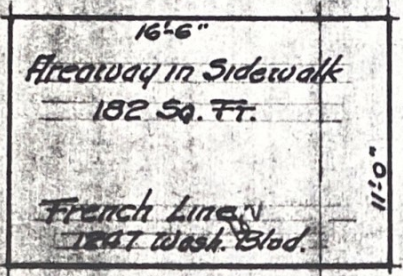 16'-6"
Areaway in Sidewalk
182 Sq. Ft.
11'-0"
French Line
1247 Wash. Blvd.